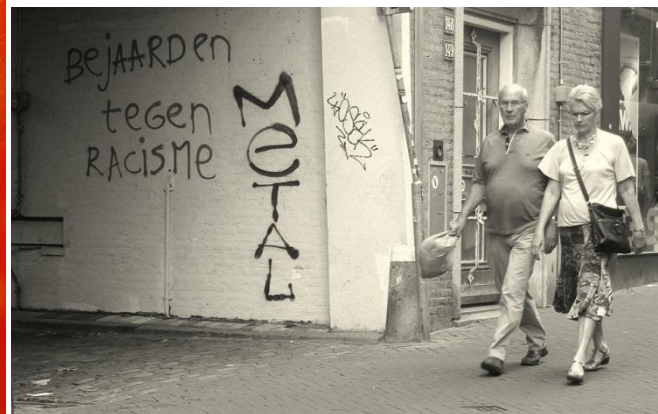 BejAARDen
tegen
RACISMe
MeTAL
148
149